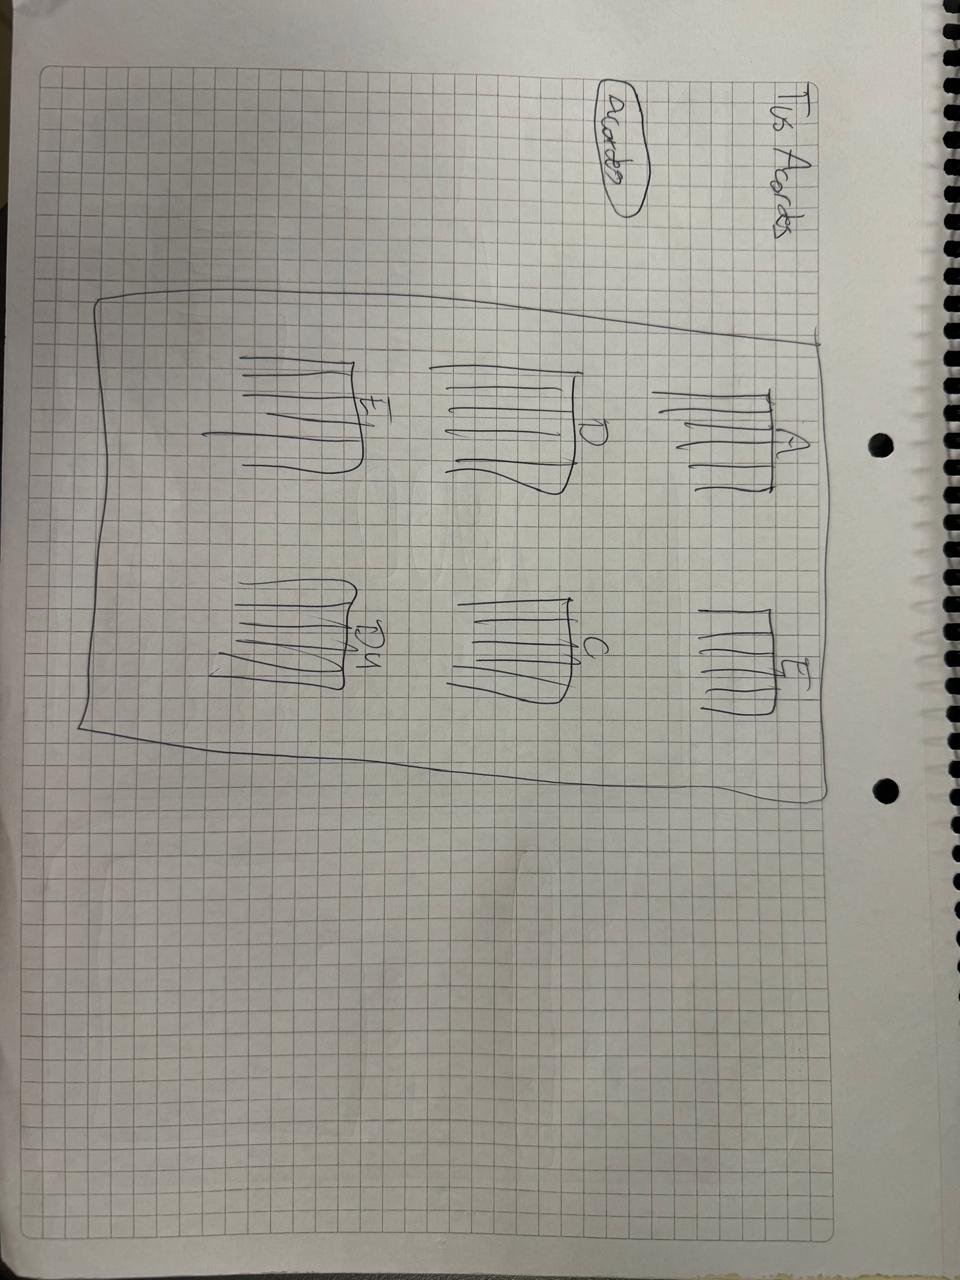 Tus Acordes
Acordes
A
E
D
C
E
D4